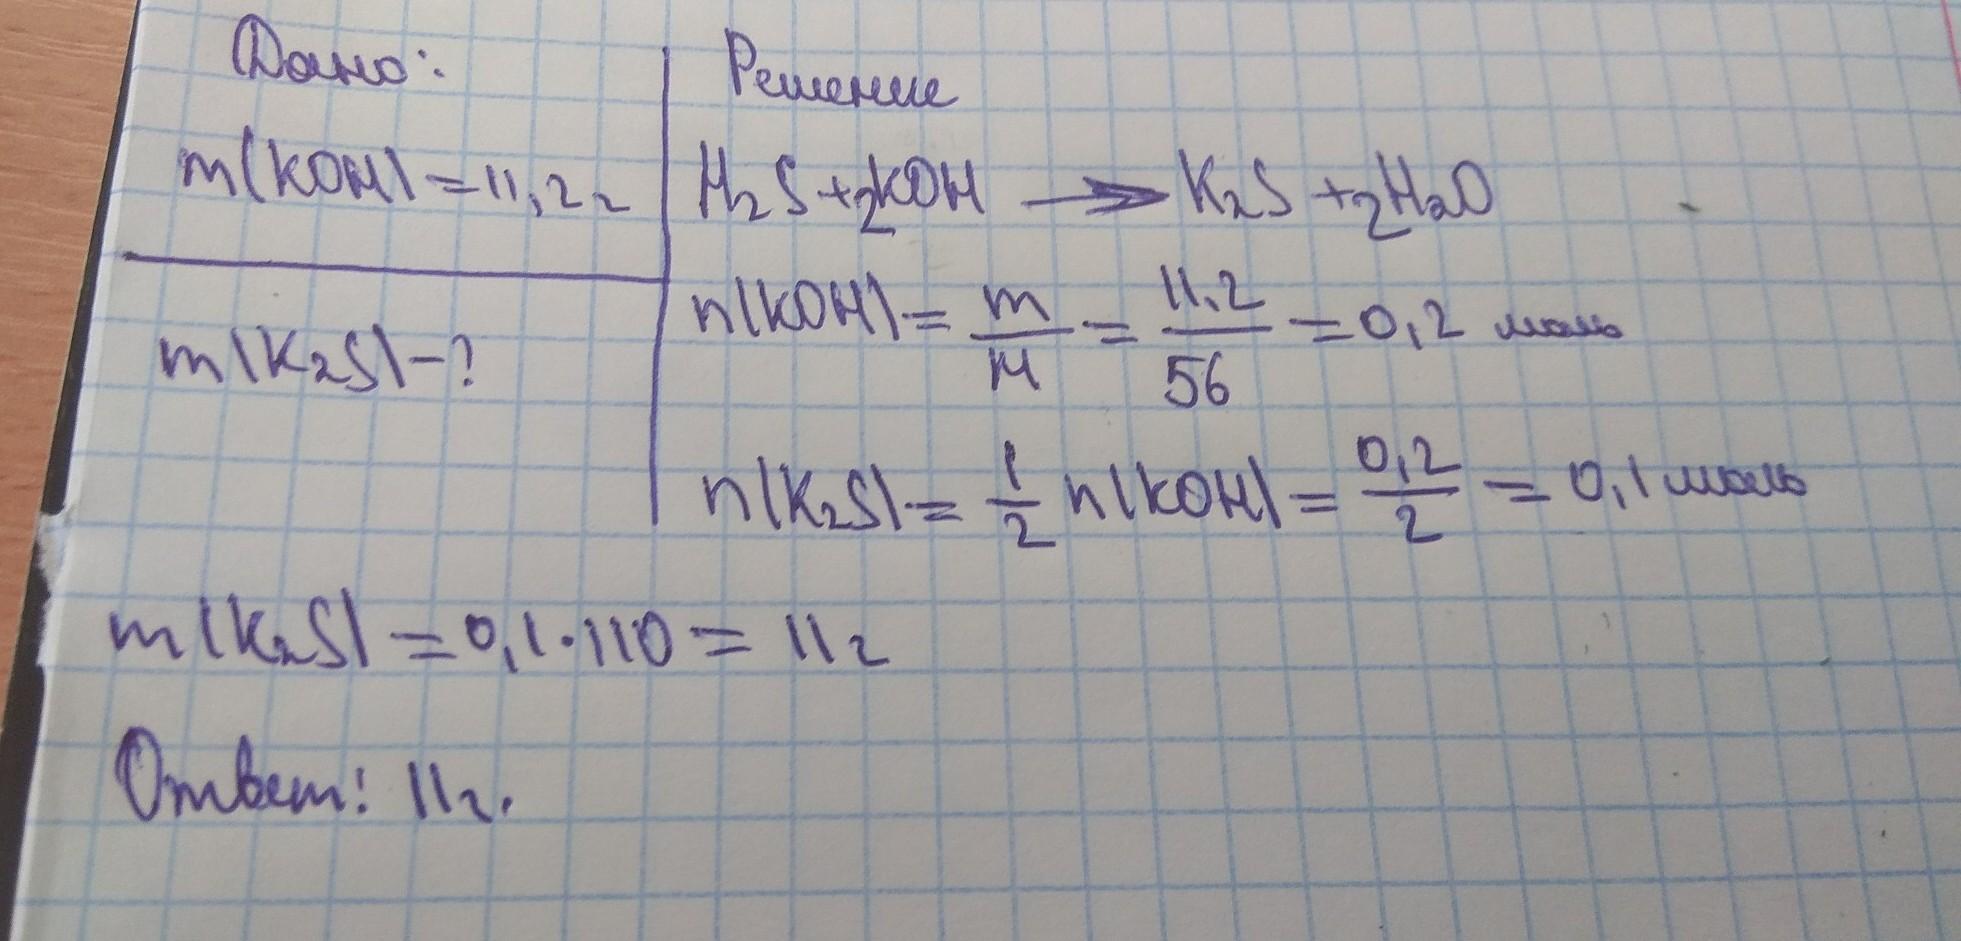 Дано:
m(KOH) = 11,2 г
m(K₂S) - ?
Решение
H₂S + 2KOH → K₂S + 2H₂O
n(KOH) = m/M = 11,2/56 = 0,2 моль
n(K₂S) = 1/2 n(KOH) = 0,2/2 = 0,1 моль
m(K₂S) = 0,1 · 110 = 11 г
Ответ: 11 г.